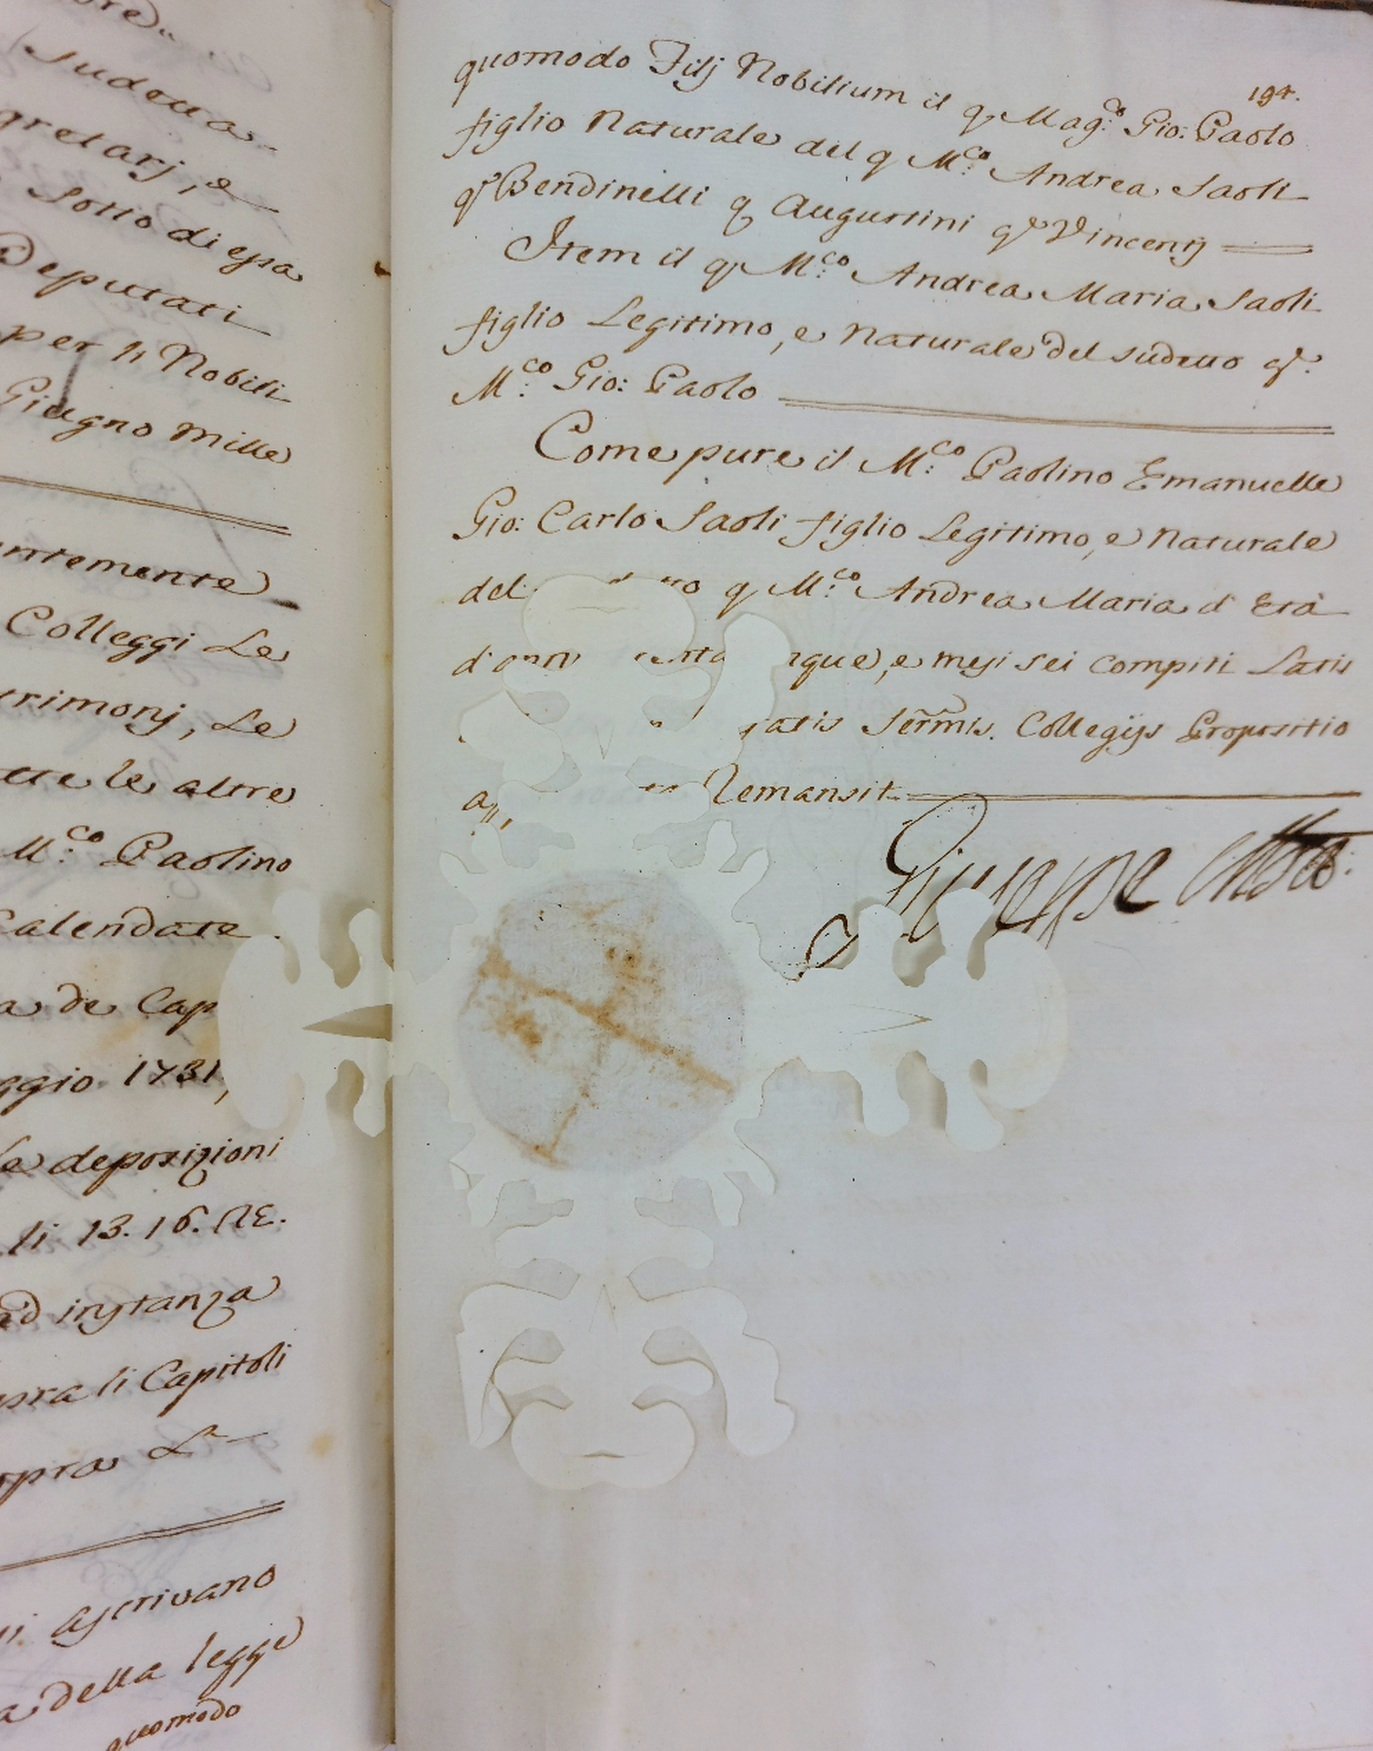 Sudetta
gretarj, e
Sotto di essa
Deputati
per li Nobili
Giugno Mille
ntemente
Colleggi Le
trimonj, Le
tte le altre
M:co Paolino
Calendate.
a de Cap
ggio 1731,
le deposizioni
li 13. 16. RE.
ad instanza
pra li Capitoli
opra
ascrivano
a della legge
quomodo
194.
quomodo Filij Nobilium il q. Mag:co Gio: Paolo
figlio Naturale del q. M:co Andrea Saoli
qm Bendinelli q. Augustini qm Vincentij
Item il q. M:co Andrea Maria Saoli
figlio Legitimo, e Naturale del sudetto qm
M:co Gio: Paolo
Come pure il M:co Paolino Emanuelle
Gio: Carlo Saoli figlio Legitimo, e Naturale
del q. M:co Andrea Maria d'Età
e mesi sei compiti Latis
Ser.mis Collegijs Propositio
Remansit
Giuseppe